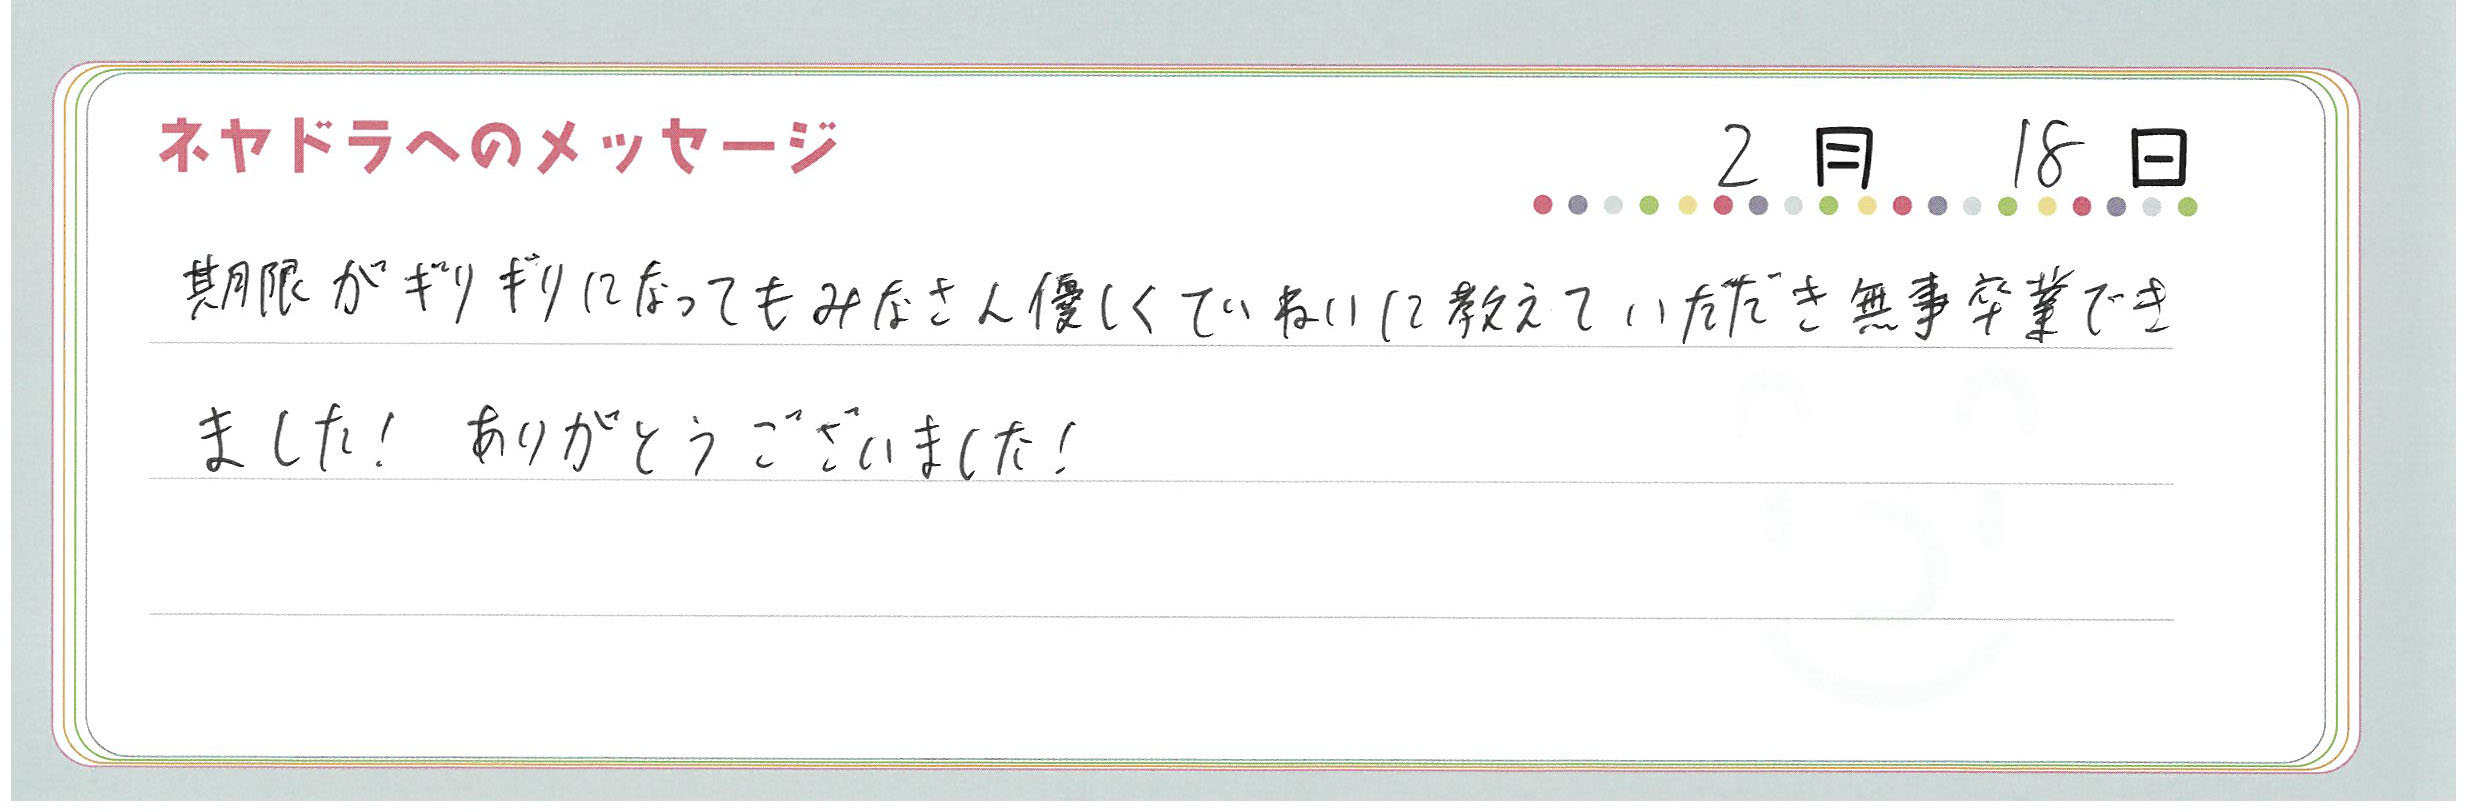 ネヤドラへのメッセージ
2月 18日
期限がギリギリになってもみなさん優しくていねいに教えていただき無事卒業でき
ました! ありがとうございました!